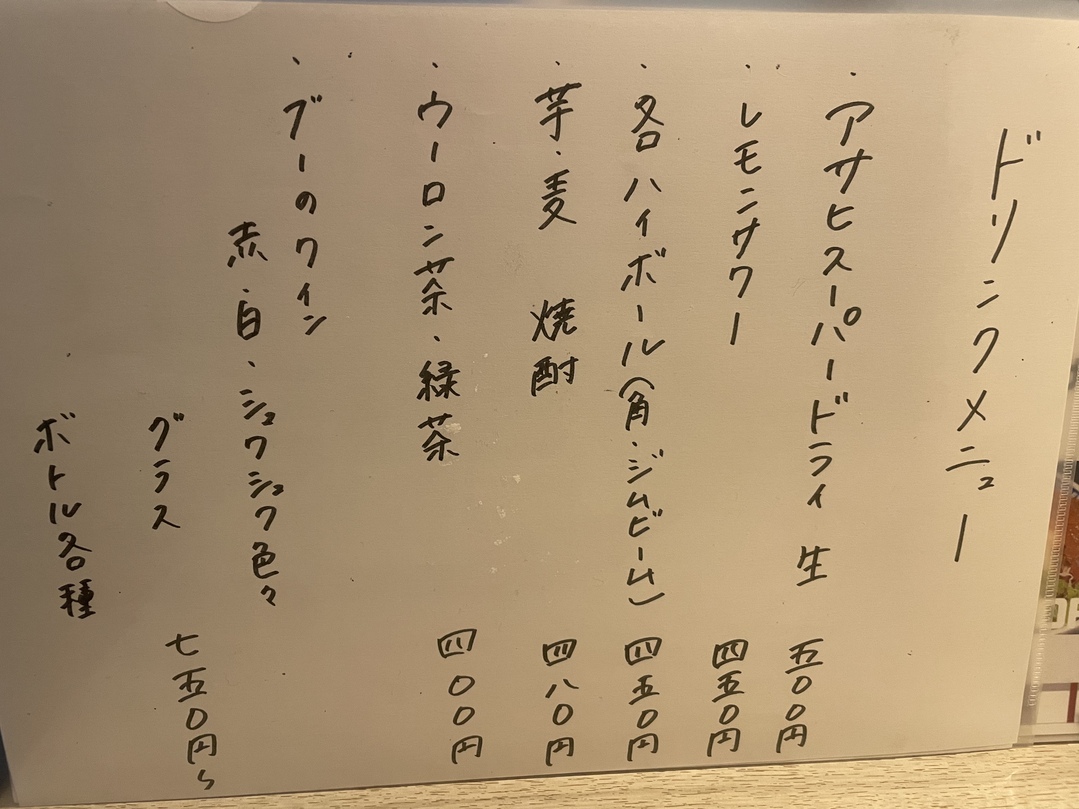 ドリンクメニュー
・アサヒスーパードライ 生 五〇〇円
・レモンサワー 四五〇円
・各ハイボール(角・ジムビーム) 四五〇円
・芋・麦 焼酎 四八〇円
・ウーロン茶・緑茶 四〇〇円
・ブーのワイン
赤・白・シュワシュワ色々
グラス 七五〇円〜
ボトル各種